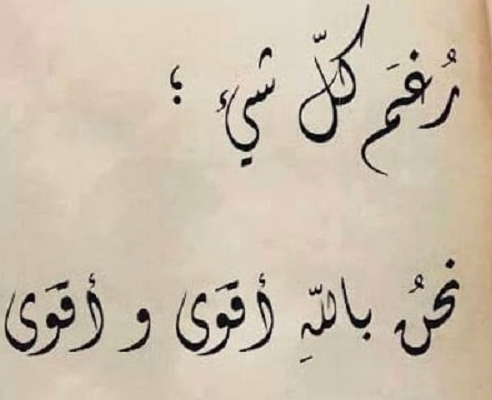 رُغمَ كلّ شيء ؛
نحنُ باللّهِ أقوَى و أقوَى